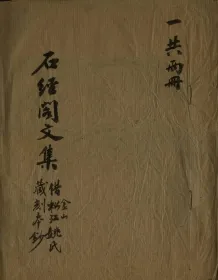 一共兩冊
石經閣文集
金山
借松江姚氏
藏刻本鈔